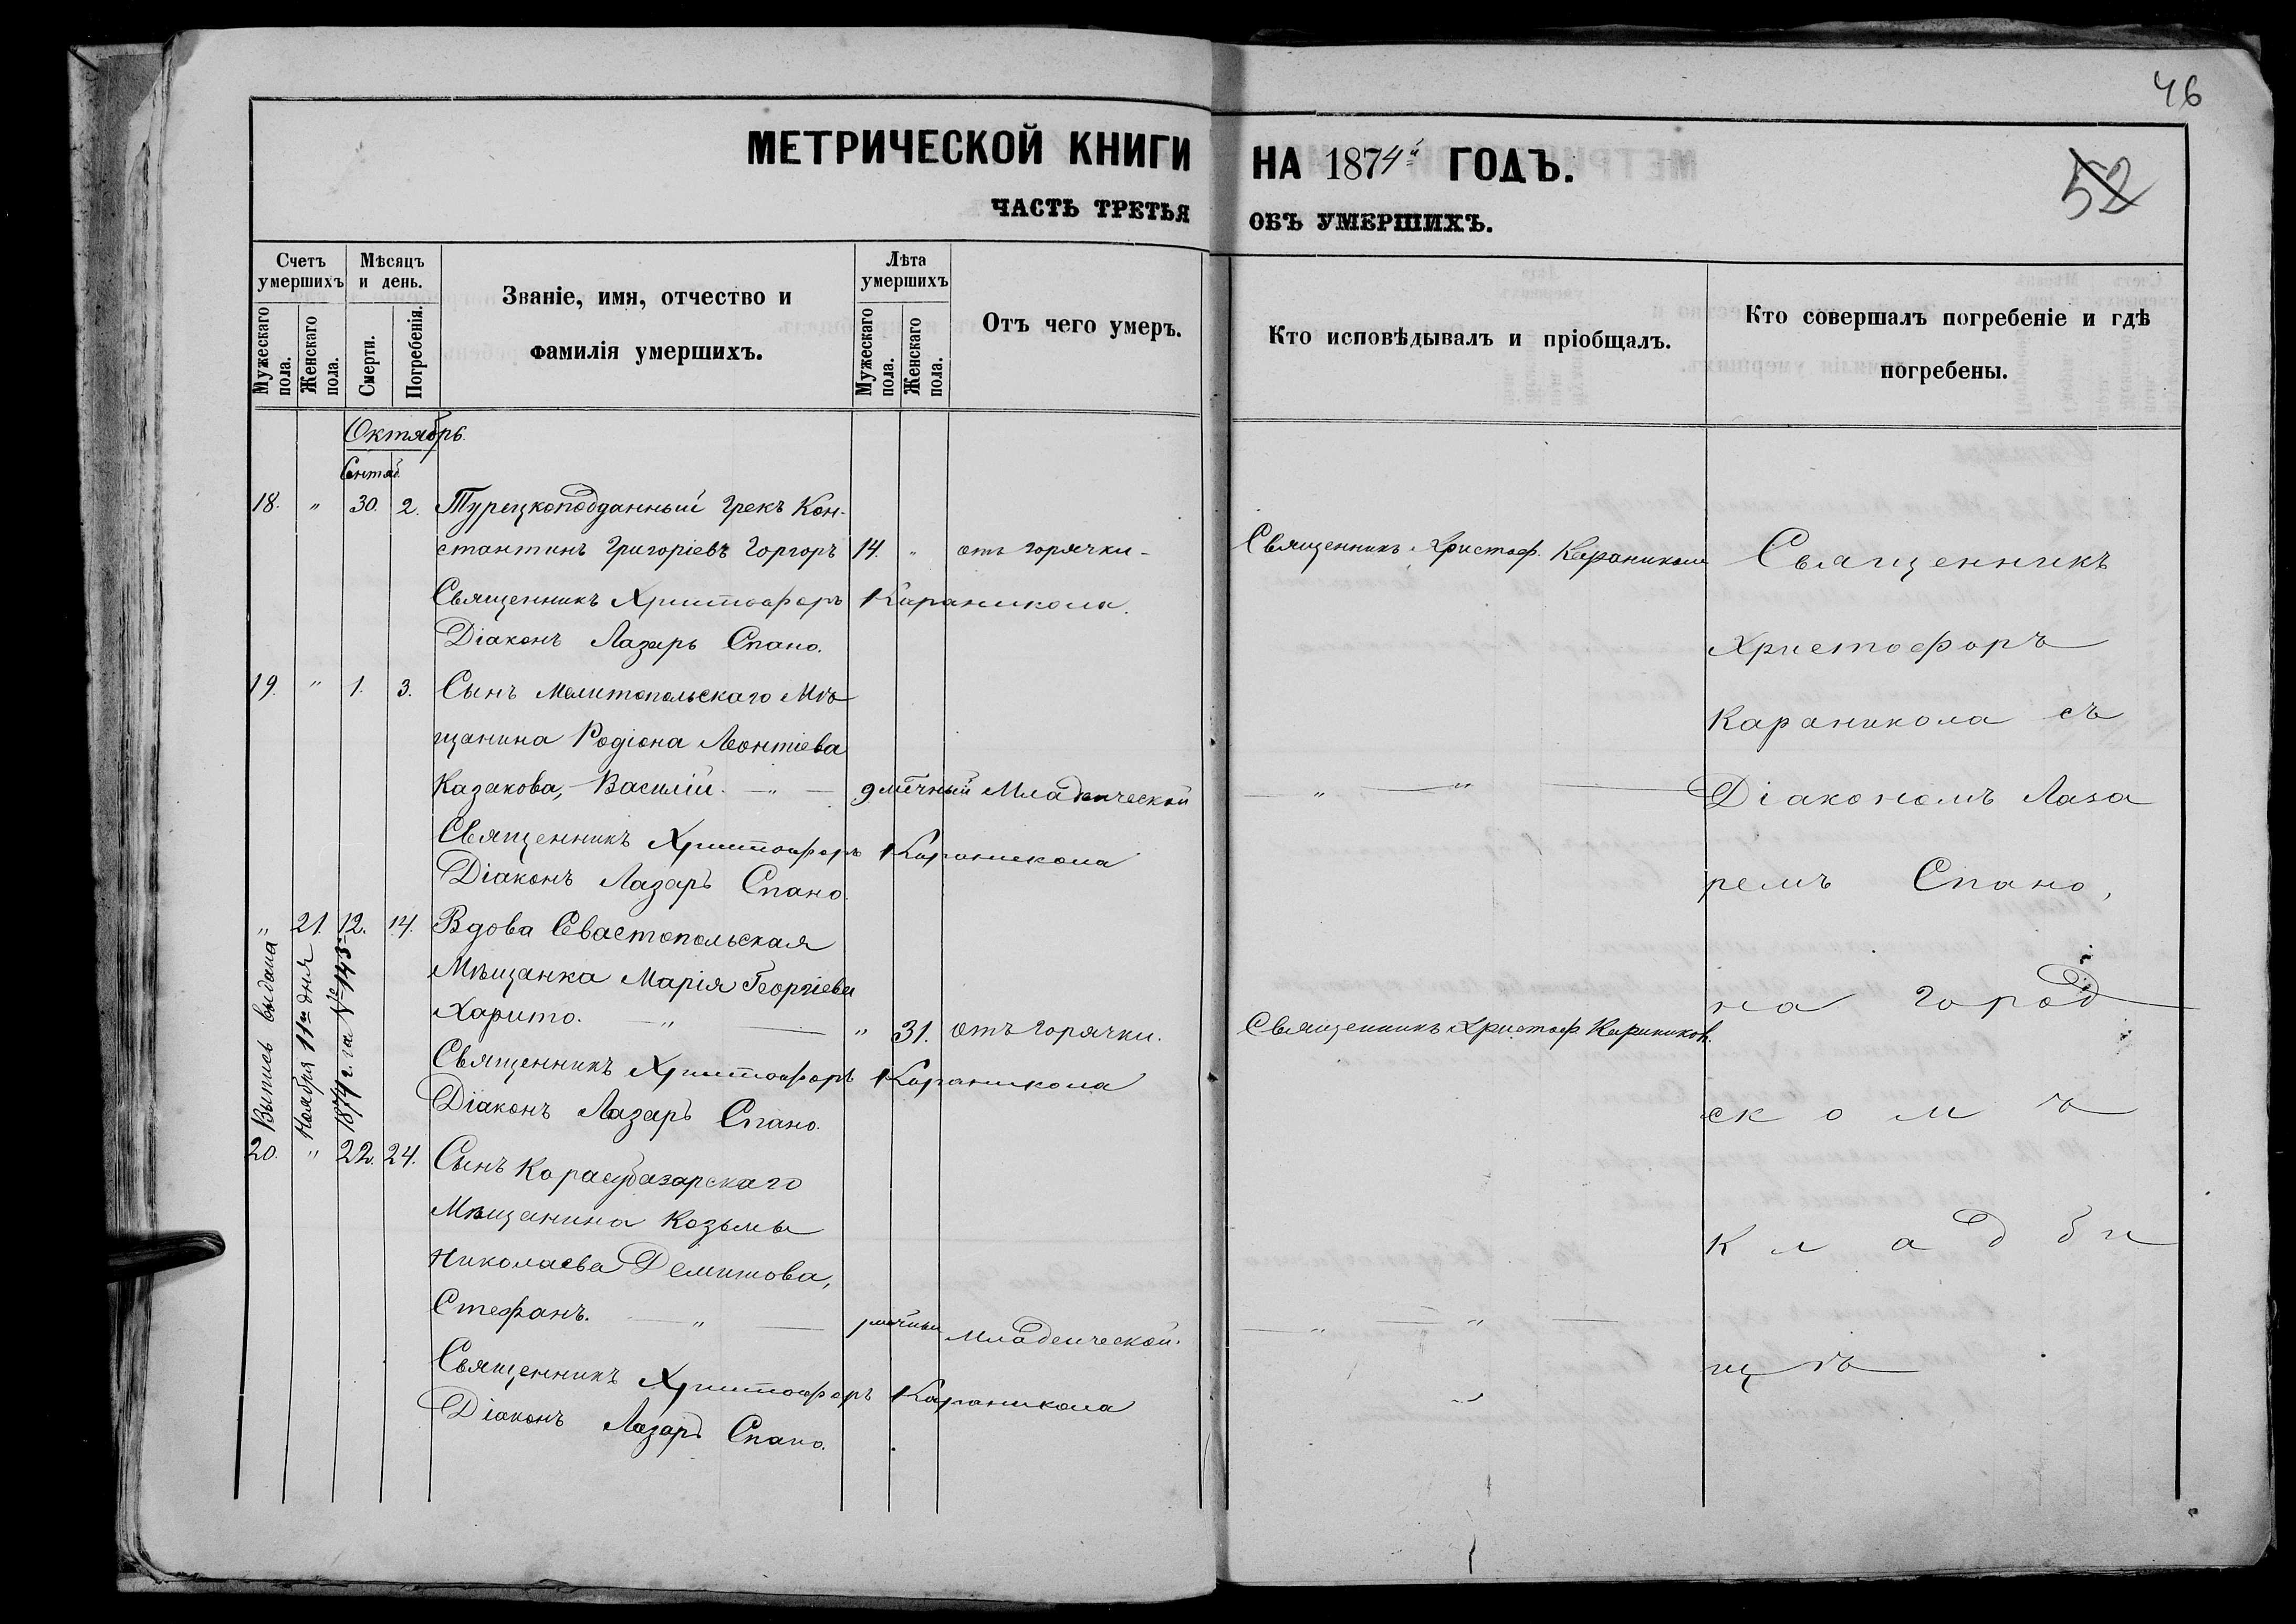 46
52
МЕТРИЧЕСКОЙ КНИГИ НА 1874й ГОДЪ.
ЧАСТЬ ТРЕТЬЯ ОБЪ УМЕРШИХЪ.
Счетъ умершихъ
Мужескаго пола.
Женскаго пола.
Мѣсяцъ и день.
Смерти.
Погребенія.
Званіе, имя, отчество и
фамилія умершихъ.
Лѣта умершихъ
Мужескаго пола.
Женскаго пола.
Отъ чего умеръ.
Кто исповѣдывалъ и пріобщалъ.
Кто совершалъ погребеніе и гдѣ
погребены.
Октябрь.
Сентяб.
18. " 30. 2. Турецкоподданный грекъ Кон-
стантинъ Григоріевъ Горгоръ 14. " отъ горячки - Священникъ Христоф. Караникола
Священникъ Христофоръ Караникола.
Діаконъ Лазарь Спано.
19. " 1. 3. Сынъ Мелитопольскаго Мѣ
щанина Родіона Леонтіева
Казакова, Василій. — " — 9 мѣсчный Младенческой — " — " —
Священникъ Христофоръ Караникола
Діаконъ Лазарь Спано.
" 21. 12. 14. Вдова Севастопольская
Мѣщанка Марія Георгіева
Харито. — " — " 31. отъ горячки. Священникъ Христоф Караникол.
Священникъ Христофоръ Караникола
Діаконъ Лазарь Спано.
Выпись выдана
Ноября 11го дня
1874 г. за № 143
20. " 22. 24. Сынъ Карасубазарскаго
Мѣщанина Козьмы
Николаева Делитова,
Стефанъ. — " — мѣсчный Младенческой. — " — " —
Священникъ Христофоръ Караникола
Діаконъ Лазарь Спано.
Священникъ
Христофоръ
Караникола съ
Діакономъ Лаза
ремъ Спано,
на город
скомъ
кладби
щѣ